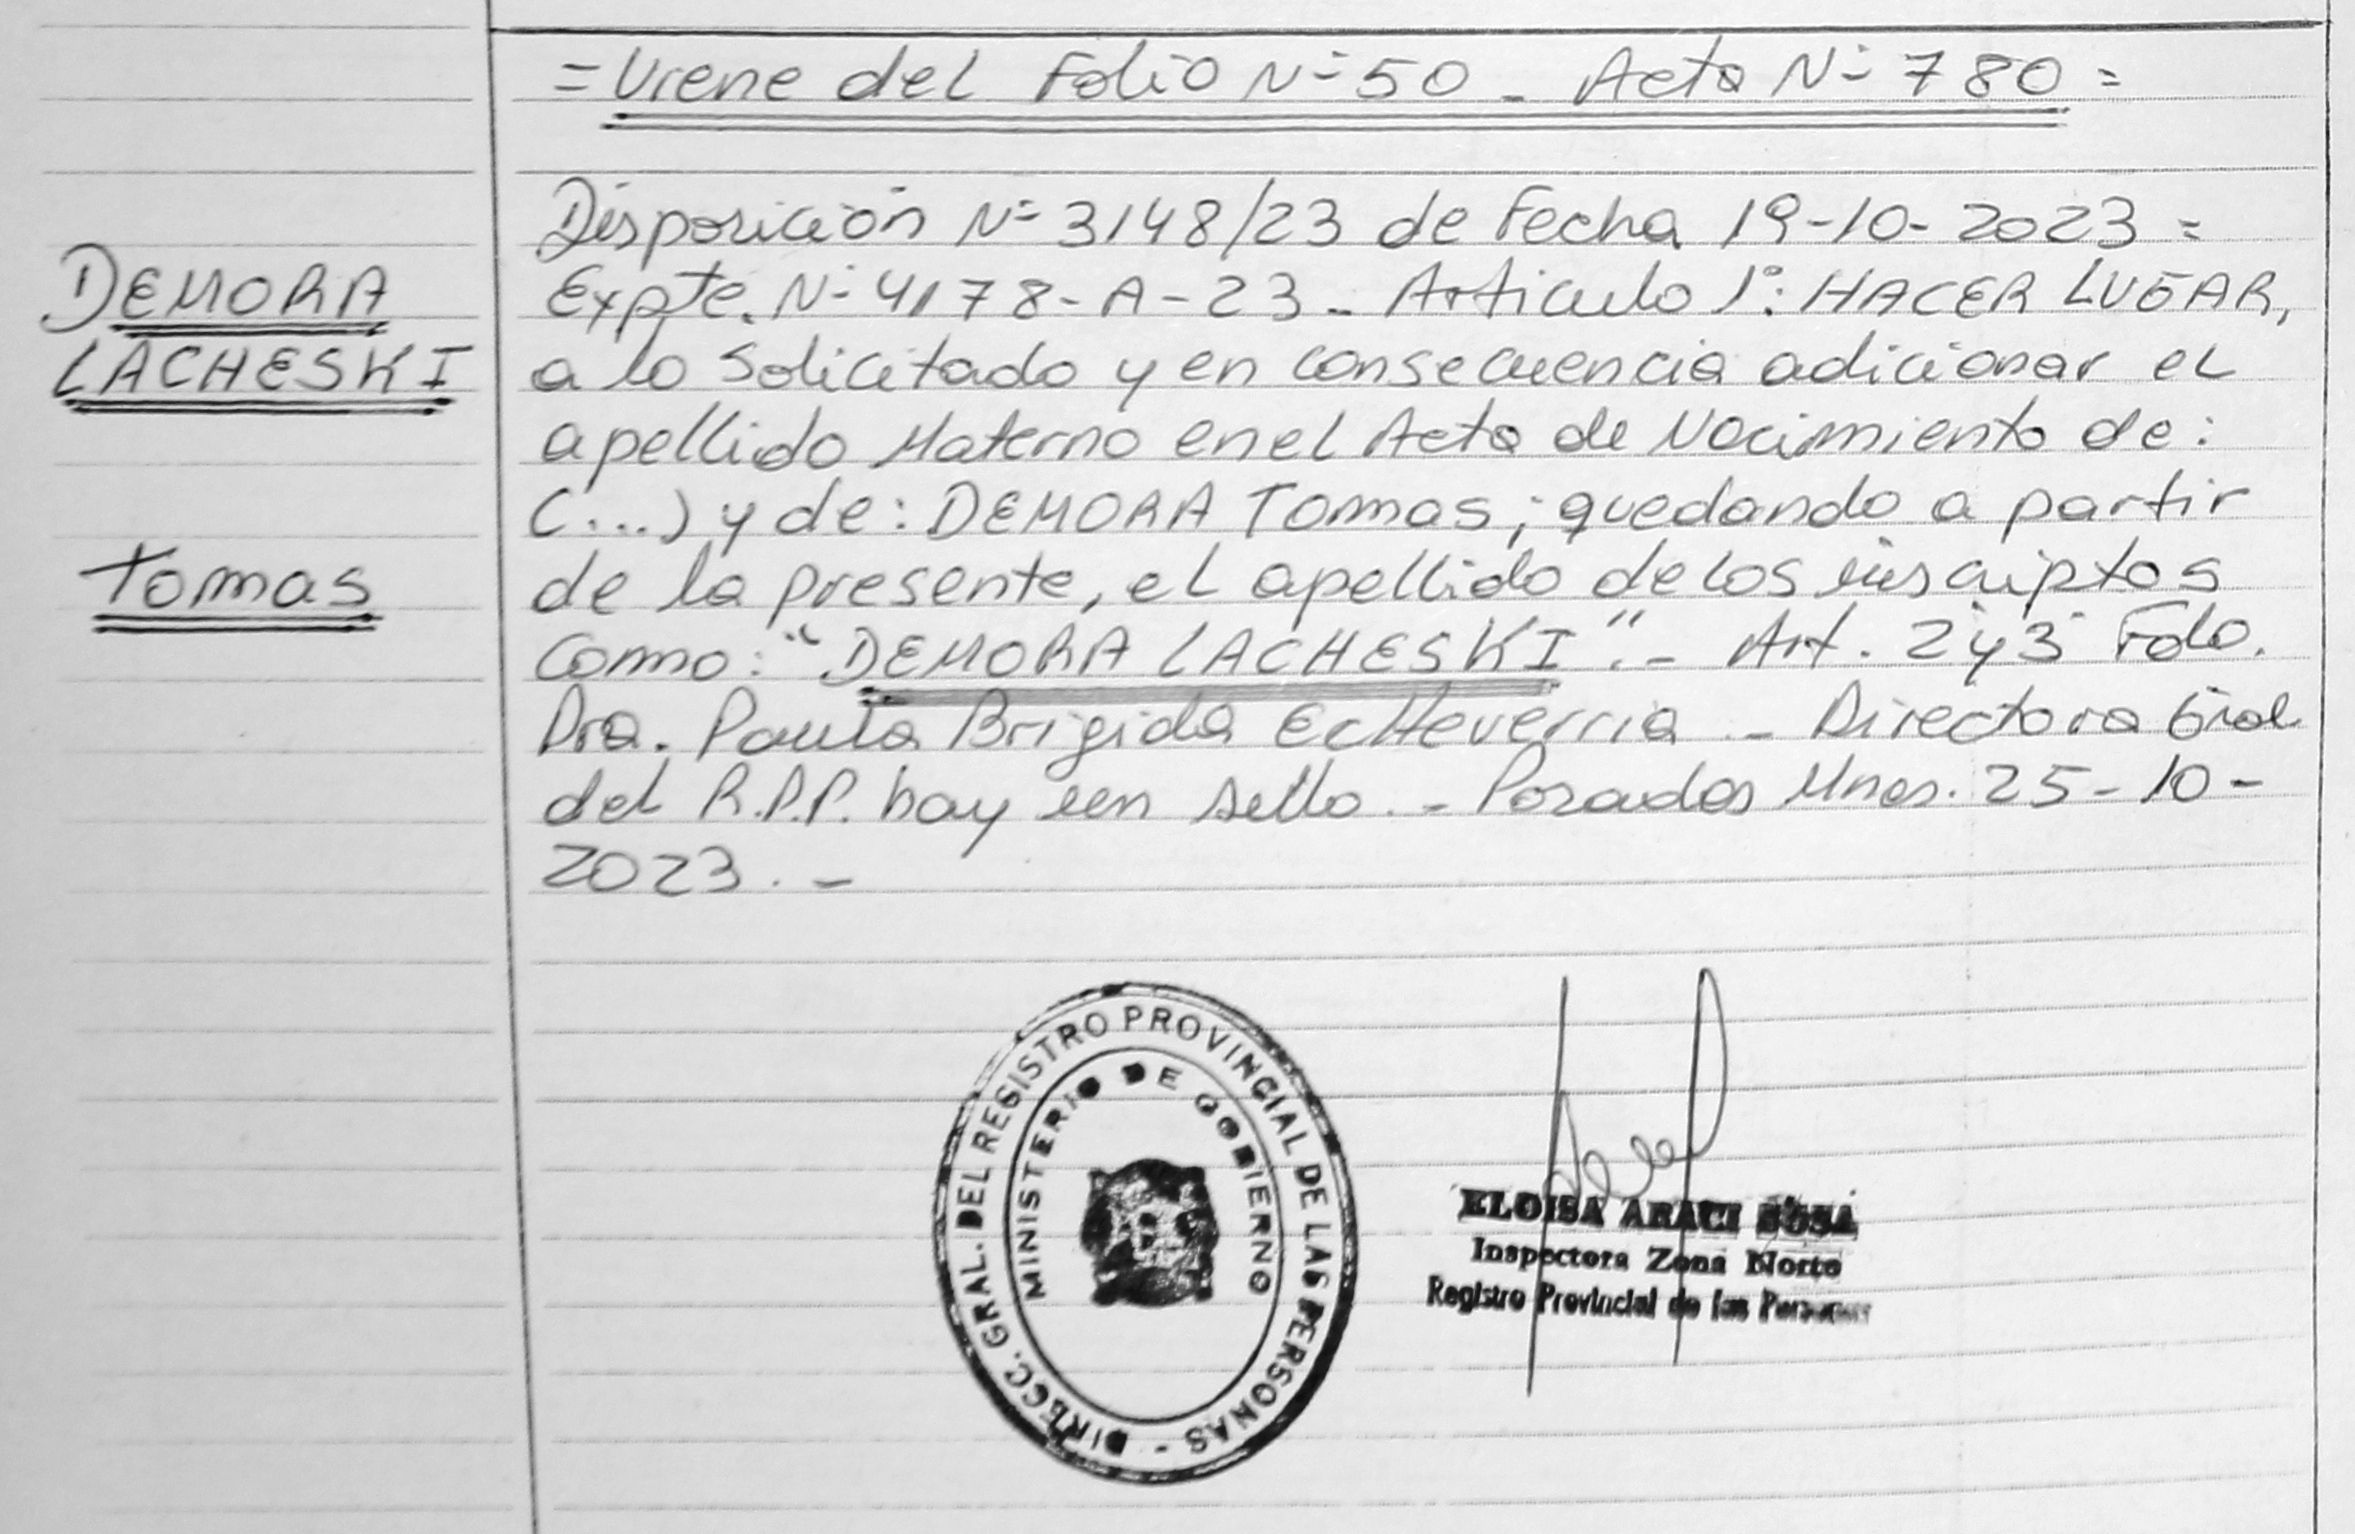 = Viene del Folio Nº 50 _ Acta Nº 780 =
DEMORA
LACHESKI
Tomas
Disposición Nº 3148/23 de Fecha 19-10-2023 =
Expte. Nº 4178-A-23 _ Articulo 1º: HACER LUGAR,
a lo Solicitado y en consecuencia adicionar el
apellido Materno en el Acta de Nacimiento de:
(...) y de: DEMORA Tomas; quedando a partir
de la presente, el apellido de los inscriptos
Como: "DEMORA LACHESKI". _ Art. 2 y 3 Fdo.
Dra. Paula Brigida EcHeverria _ Directora Gral
del R.P.P. hay un sello. _ Posadas Mnes. 25-10-
2023. _
DIRECC. GRAL. DEL REGISTRO PROVINCIAL DE LAS PERSONAS -
MINISTERIO DE GOBIERNO
ELOISA ARACI SOSA
Inspectora Zona Norte
Registro Provincial de las Personas